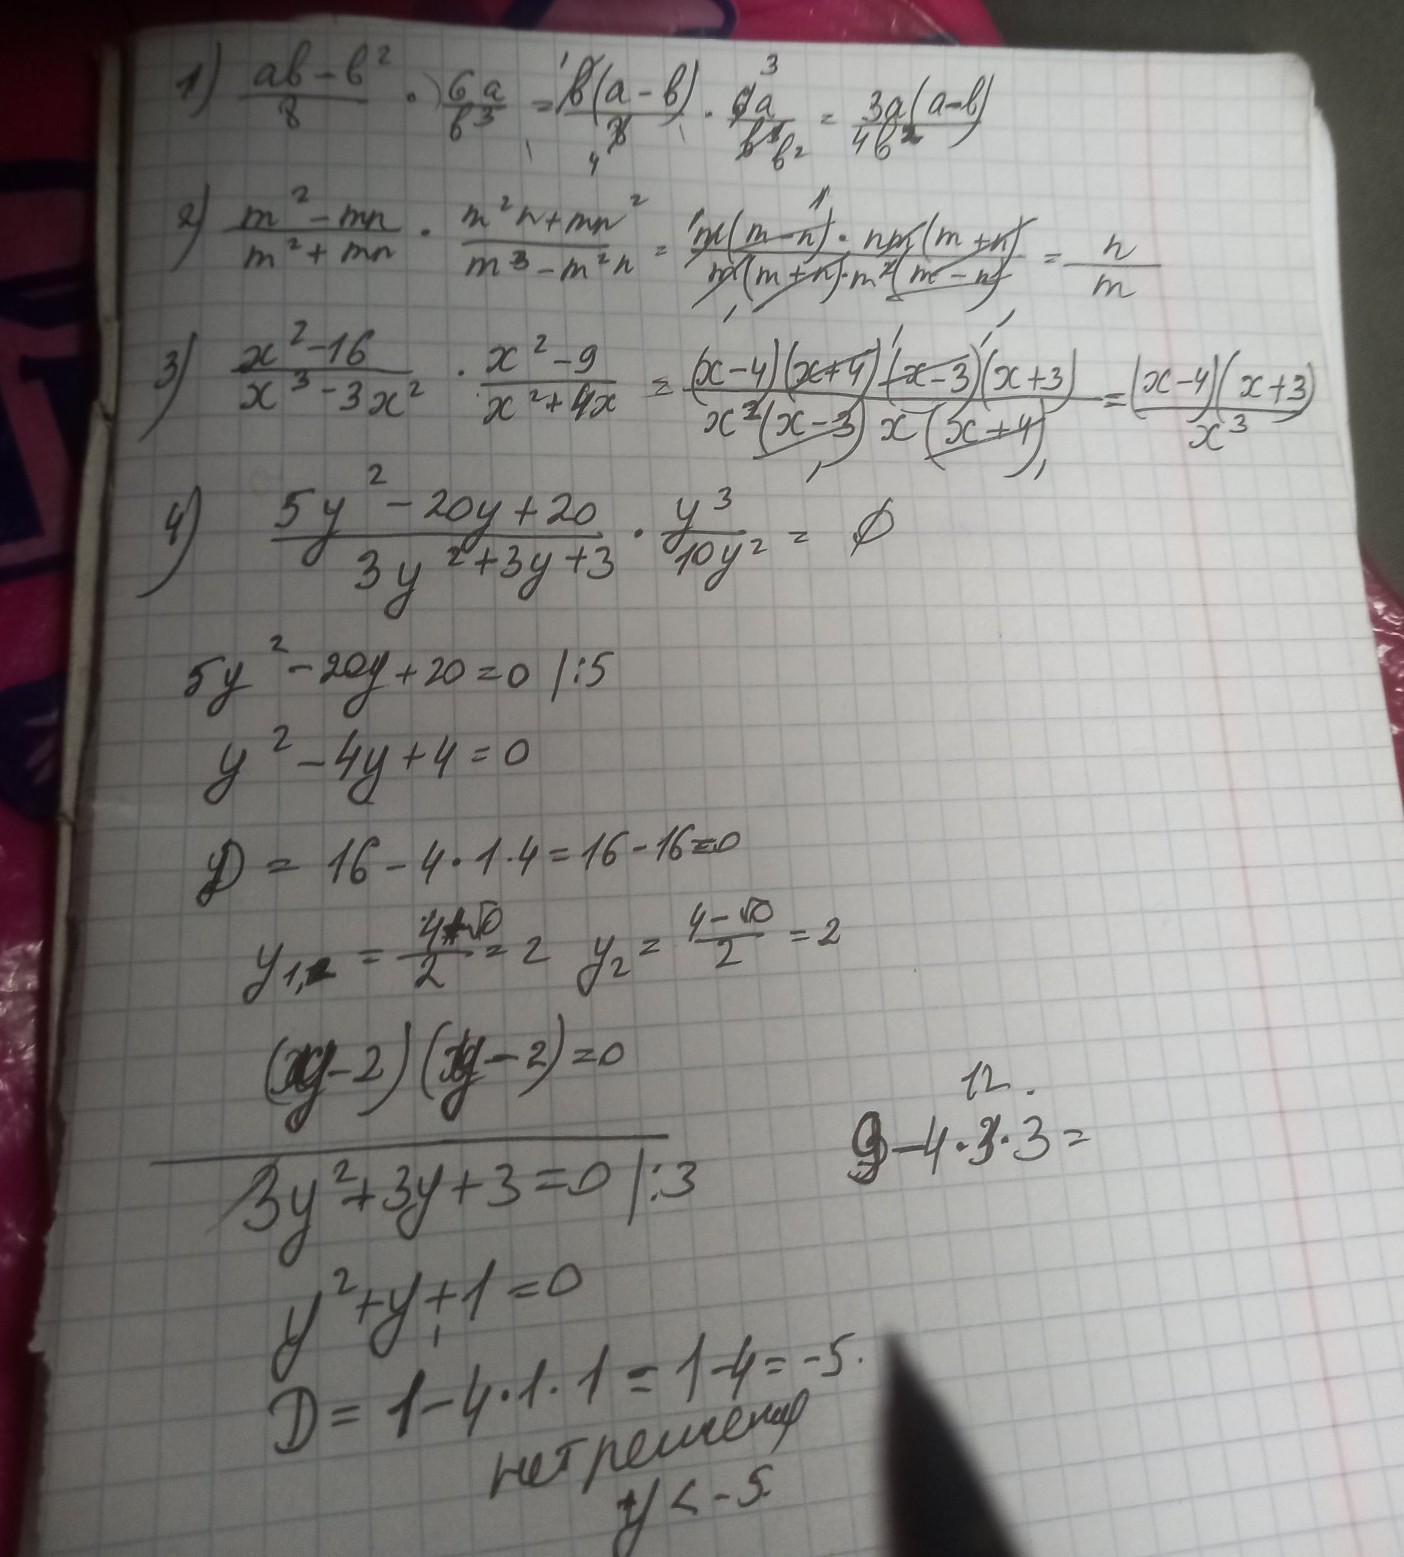 1) (ab - b²)/8 · 6a/b³ = b(a - b)/8 · 6a/b³ = 3a(a-b)/4b²
2) (m² - mn)/(m² + mn) · (m²n + mn²)/(m³ - m²n) = m(m-n) · nm(m+n)/m(m+n)·m²(m-n) = n/m
3) (x² - 16)/(x³ - 3x²) · (x² - 9)/(x² + 4x) = (x-4)(x+4)(x-3)(x+3)/x²(x-3)x(x+4) = (x-4)(x+3)/x³
4) (5y² - 20y + 20)/(3y² + 3y + 3) · y³/10y² = ∅
5y² - 20y + 20 = 0 |:5
y² - 4y + 4 = 0
D = 16 - 4·1·4 = 16 - 16 = 0
y₁ = (4+√0)/2 = 2 y₂ = (4-√0)/2 = 2
(y-2)(y-2) = 0
12.
9-4·3·3=
3y² + 3y + 3 = 0 |:3
y² + y + 1 = 0
D = 1 - 4·1·1 = 1 - 4 = -5.
нет решения
y < -5